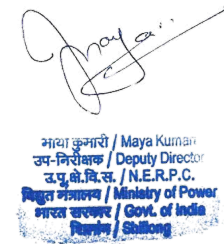 Maya
माया कुमारी / Maya Kumari
उप-निरीक्षक / Deputy Director
उ.पू.क्षे.वि.स. / N.E.R.P.C.
विद्युत मंत्रालय / Ministry of Power
भारत सरकार / Govt. of India
शिलांग / Shillong